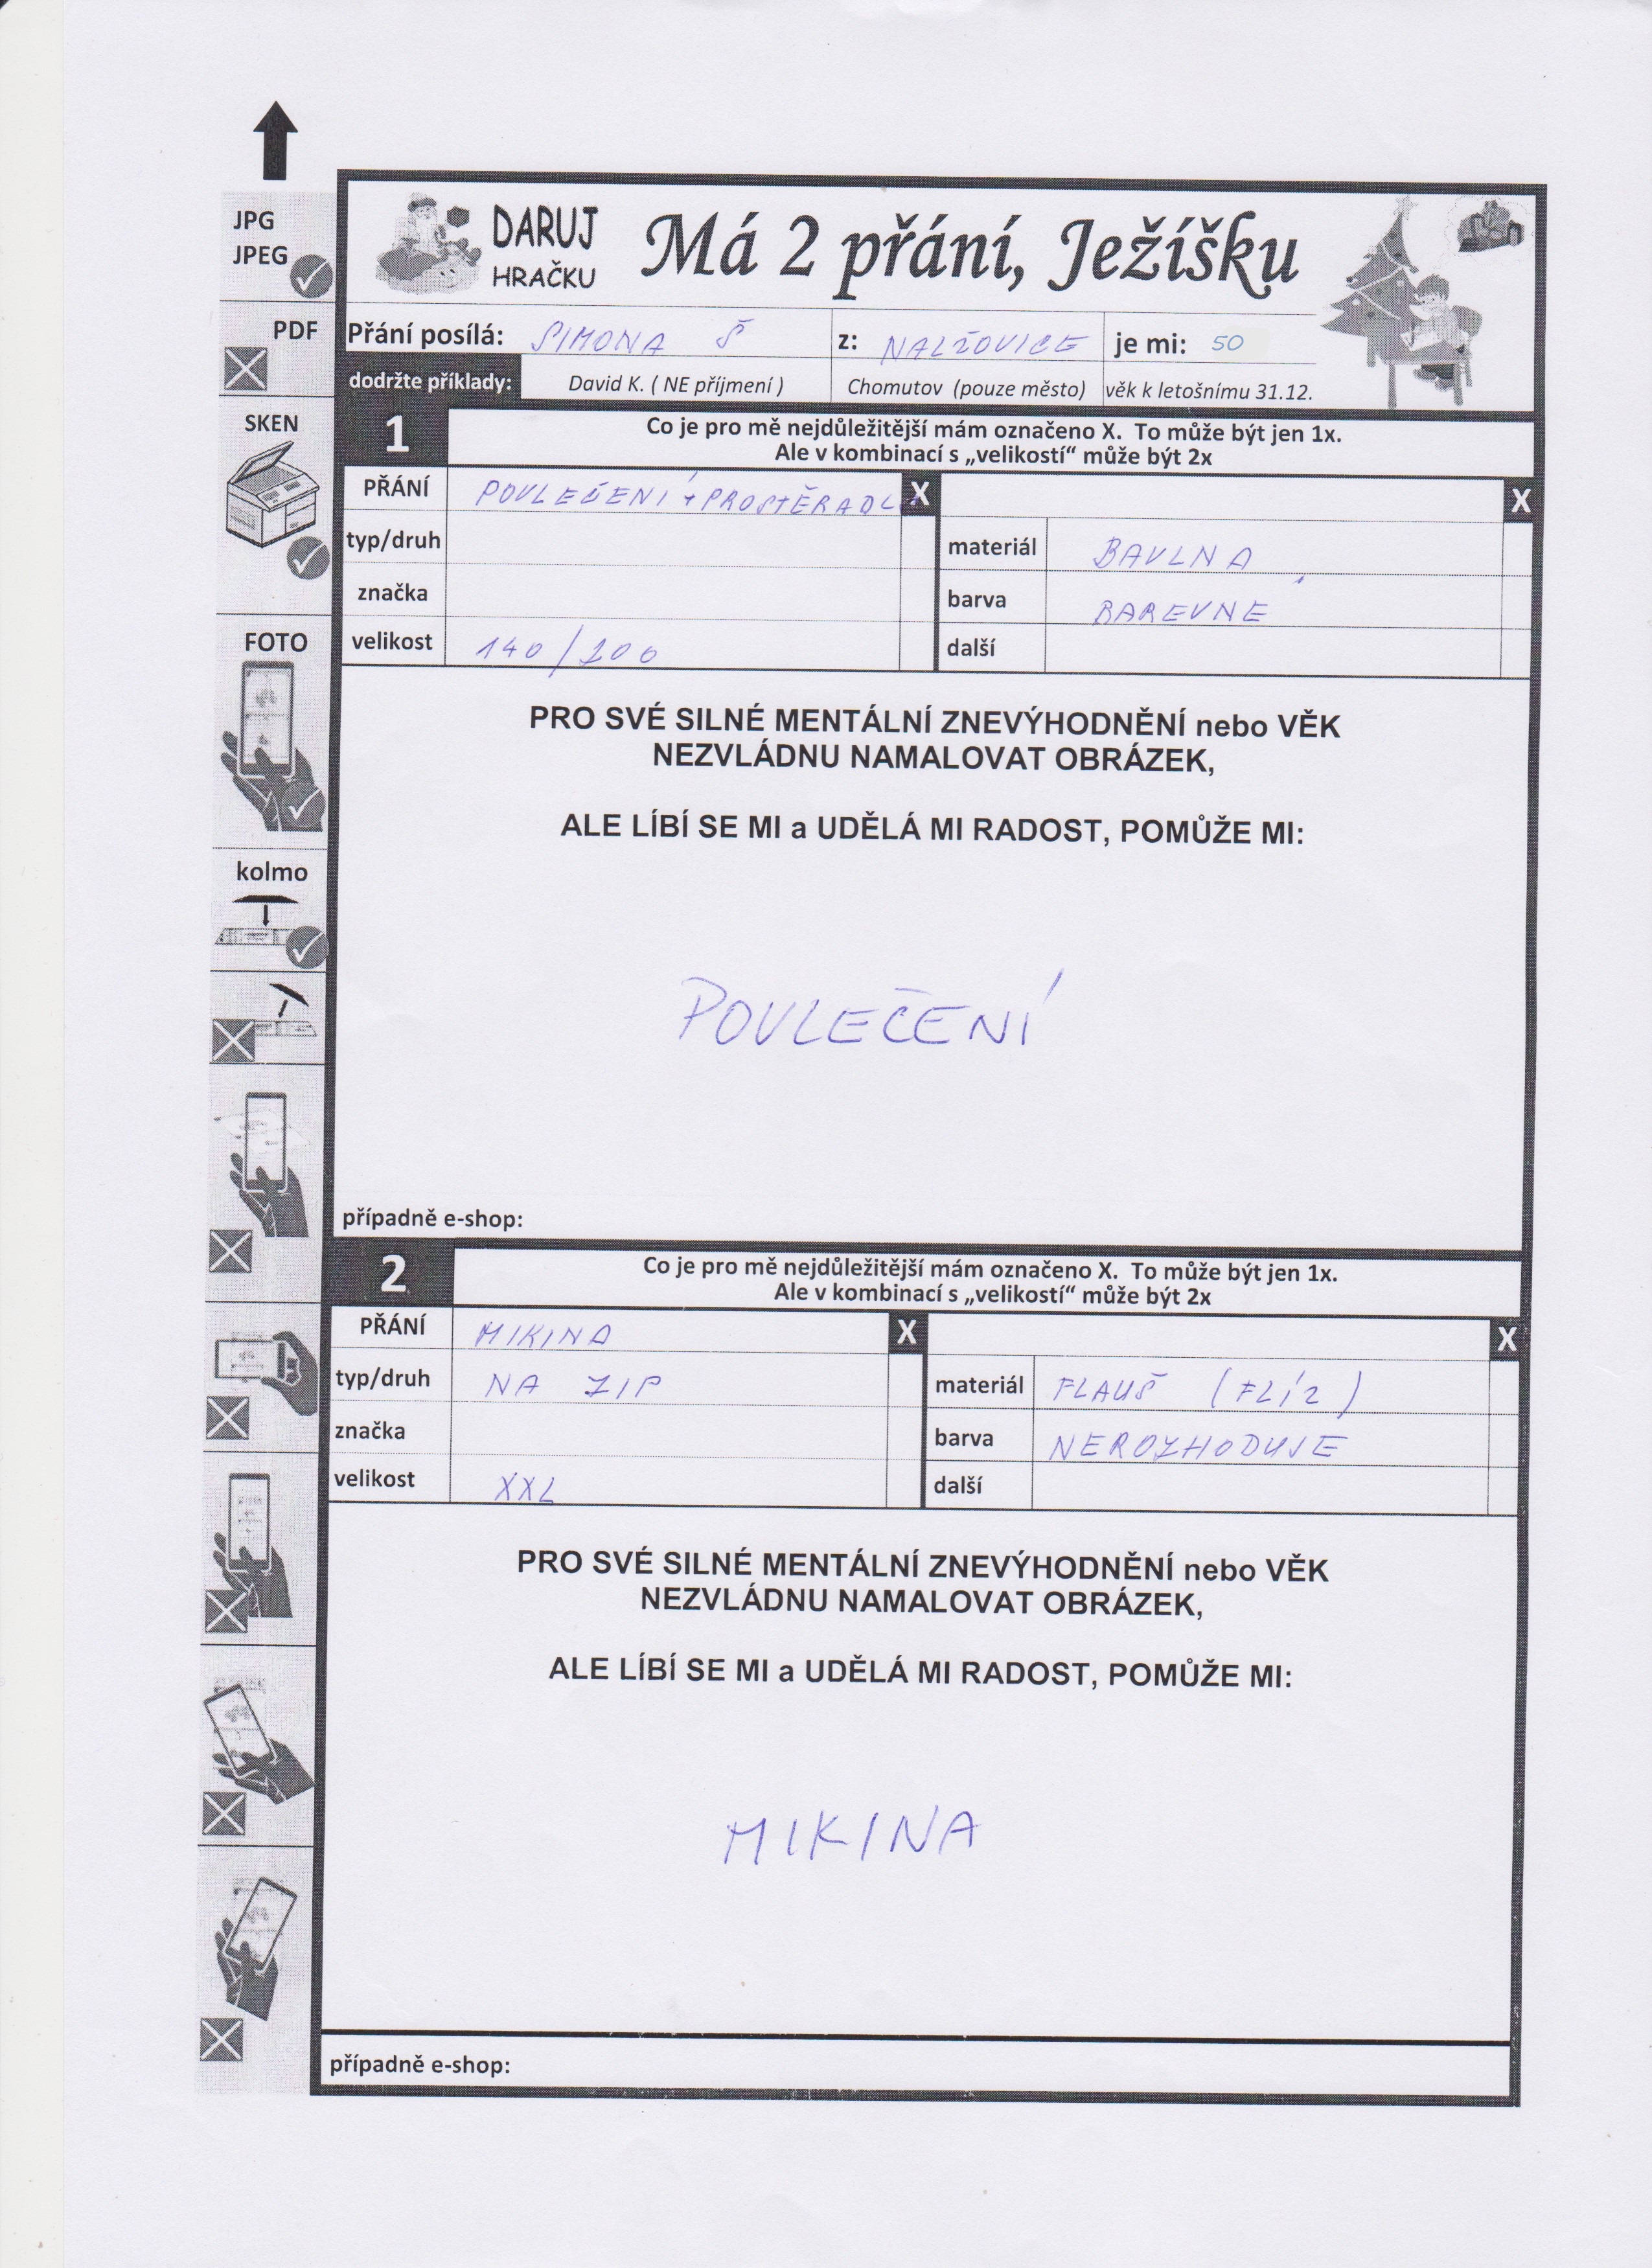 JPG
JPEG
PDF
SKEN
FOTO
kolmo
DARUJ
HRAČKU
Má 2 přání, Ježíšku
Přání posílá: SIMONA Š z: NALŽOVICE je mi: 50
dodržte příklady: David K. ( NE příjmení ) Chomutov (pouze město) věk k letošnímu 31.12.
1 Co je pro mě nejdůležitější mám označeno X. To může být jen 1x.
Ale v kombinací s „velikostí“ může být 2x
PŘÁNÍ POVLEČENÍ + PROSTĚRADLO X X
typ/druh materiál BAVLNA
značka barva BAREVNÉ
velikost 140/200 další
PRO SVÉ SILNÉ MENTÁLNÍ ZNEVÝHODNĚNÍ nebo VĚK
NEZVLÁDNU NAMALOVAT OBRÁZEK,
ALE LÍBÍ SE MI a UDĚLÁ MI RADOST, POMŮŽE MI:
POVLEČENÍ
případně e-shop:
2 Co je pro mě nejdůležitější mám označeno X. To může být jen 1x.
Ale v kombinací s „velikostí“ může být 2x
PŘÁNÍ MIKINA X X
typ/druh NA ZIP materiál FLAUŠ (FLÍZ)
značka barva NEROZHODUJE
velikost XXL další
PRO SVÉ SILNÉ MENTÁLNÍ ZNEVÝHODNĚNÍ nebo VĚK
NEZVLÁDNU NAMALOVAT OBRÁZEK,
ALE LÍBÍ SE MI a UDĚLÁ MI RADOST, POMŮŽE MI:
MIKINA
případně e-shop: